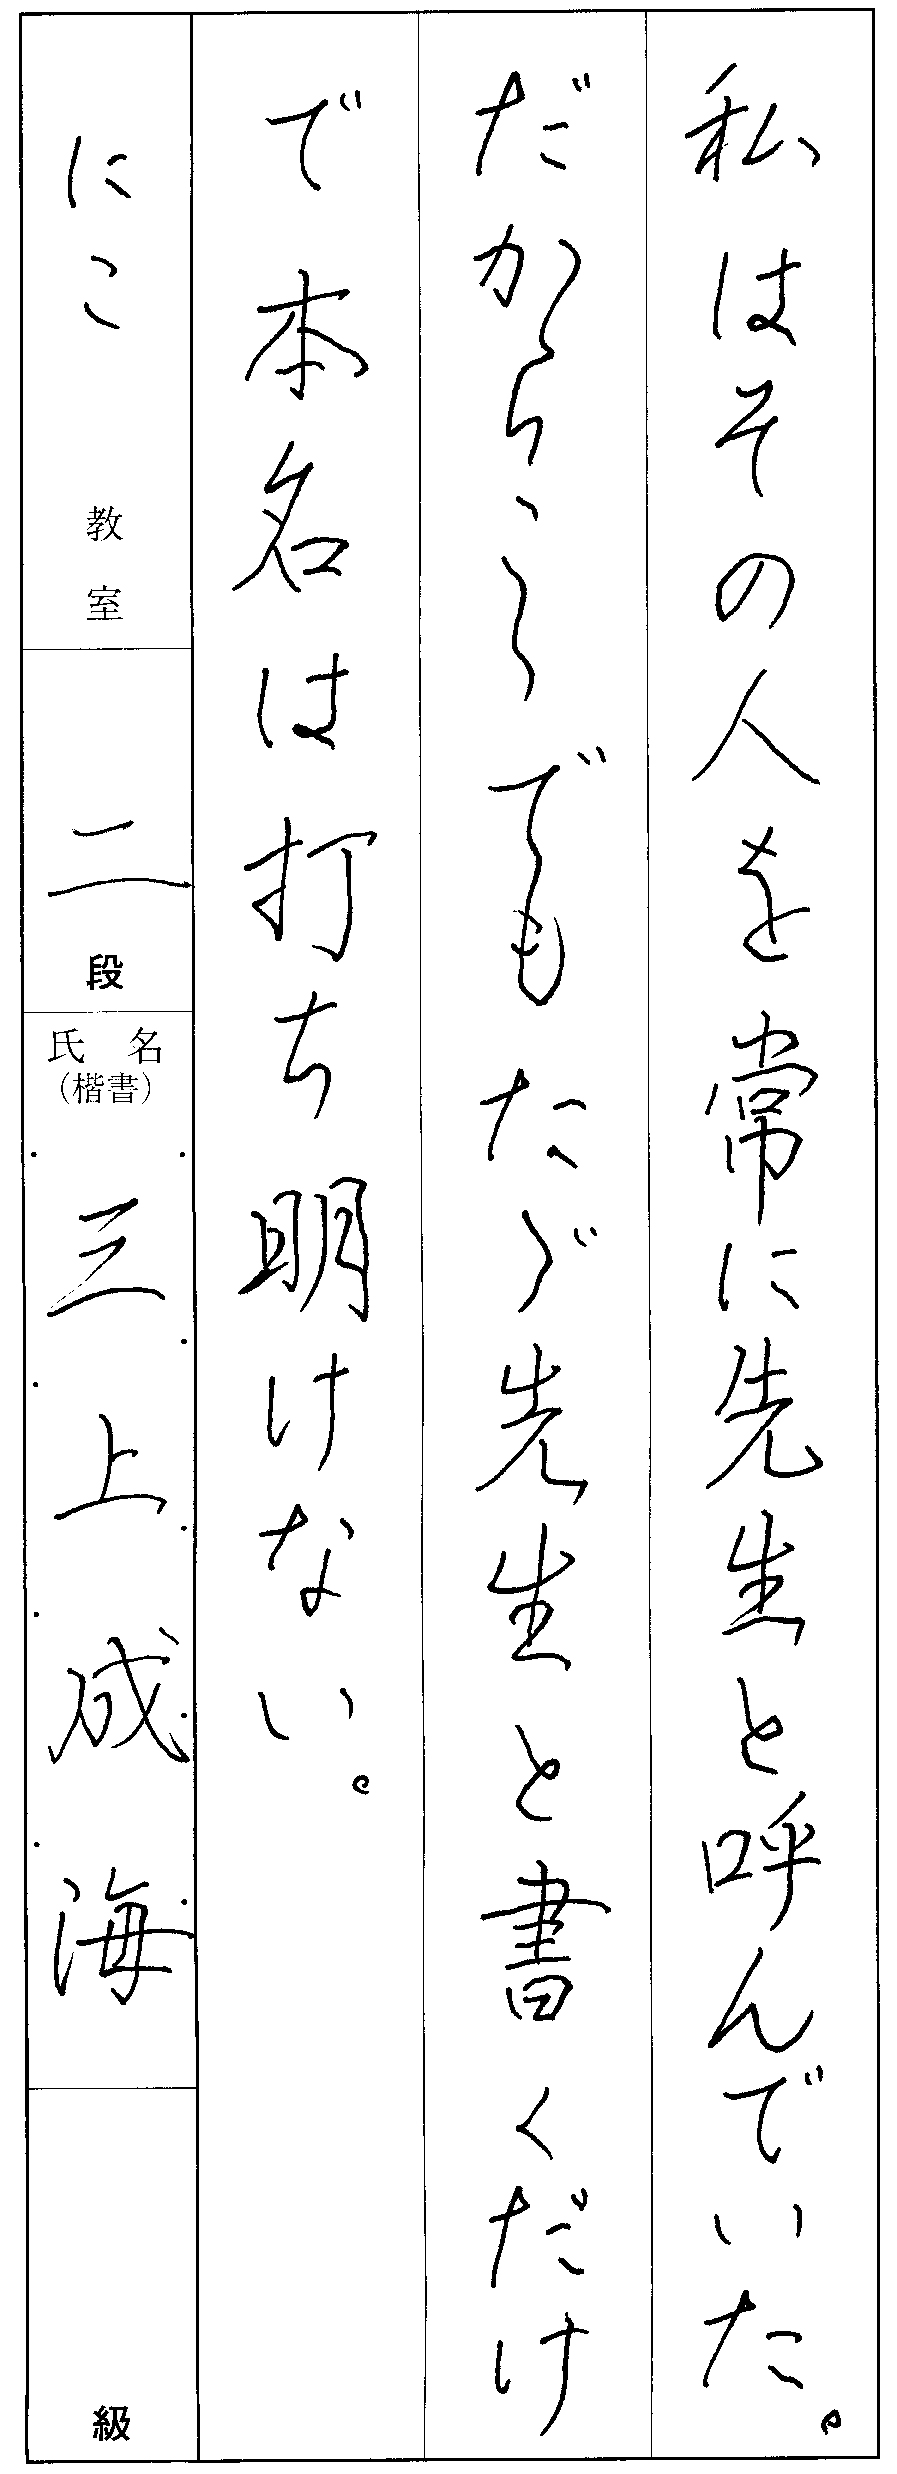 私はその人を常に先生と呼んでいた。
だからここでもたゞ先生と書くだけ
で本名は打ち明けない。
にこ 教室
二 段
氏名
(楷書)
三上成海
級